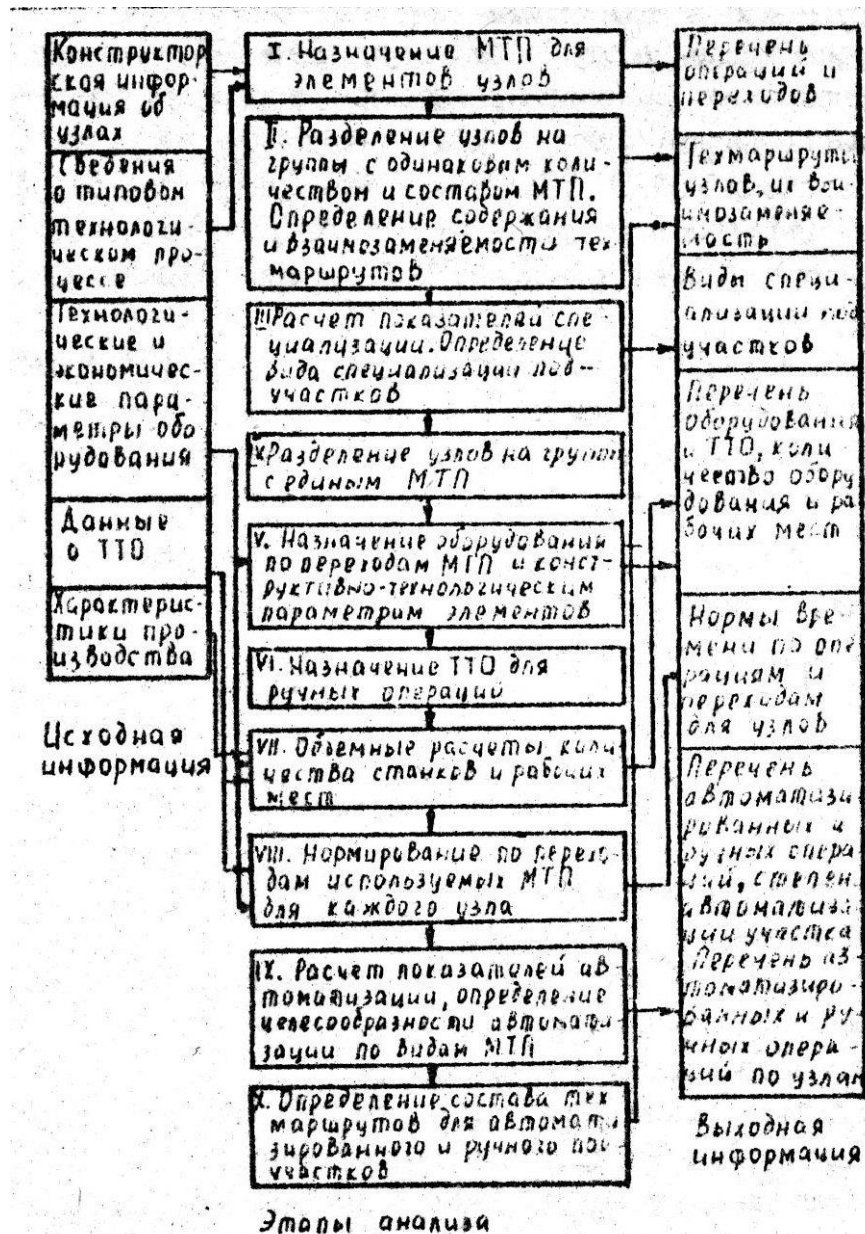 Конструктор
ская инфор-
мация об
узлах
Сведения
о типовом
технологи-
ческом про-
цессе
Технологи-
ческие и
экономичес-
кие пара-
метры обо
рудования
Данные
о ТТО
Характерис-
тики про-
изводства
Исходная
информация
I. Назначение МТП для
элементов узлов
II. Разделение узлов на
группы с одинаковым коли-
чеством и составом МТП.
Определение содержания
и взаимозаменяемости тех
маршрутов
III Расчет показателей спе-
циализации. Определение
вида специализации под-
участков
Разделение узлов на групп
с единым МТП
V. Назначение оборудования
по переходам МТП и конст-
руктивно-технологическим
параметрим элементов
VI. Назначение ТТО для
ручных операций
VII. Объемные расчеты коли-
чества станков и рабочих
мест
VIII. Нормирование по перехо-
дам используемых МТП
для каждого узла
IX. Расчет показателей ав
томатизации, определение
целесообразности автомати-
зации по видам МТП
X. Определение состава тех
маршрутов для автомати
зированного и ручного под
участков
Этапы анализа
Перечень
операций и
переходов
Техмаршруты
узлов, их вза
имозаменяе-
мость
Виды специ-
ализации под
участков
Перечень
оборудования
и ТТО, коли
чество обору
дования и ра
бочих мест
Нормы вре-
мени по опе-
рациям и
переходам
для узлов
Перечень
автоматизи
рованных и
ручных опера
ций, степень
автоматиза
ции участка
Перечень ав
томатизиро
ванных и ру
чных опера
ций по узлам
Выходная
информация